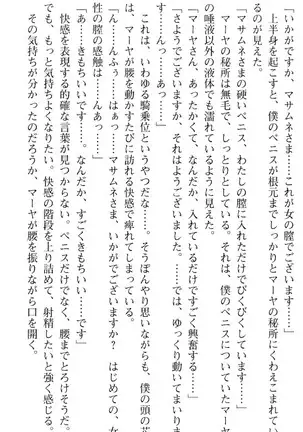 「いかがですか、マサムネさま……これが女の膣でございます……
　上半身を起こすと、僕のペニスが根元までしっかりとマーヤの秘所にくわえこまれてい
るのが見えた。
「マサムネさまの硬いペニス、わたしの膣に入れただけでびくびくしています……
　マーヤの秘所は無毛で、しっとりとしている。それは、僕のペニスについていたマーヤ
の唾液以外の液体でも濡れているように見えた。
「マーヤさん、あったかくて、なんだか、入れているだけですごく興奮する……」
「さようでございますか、それはようございました。では、ゆっくり動いてまいりま
す……んっ……あっ……」
　これは、いわゆる騎乗位というやつだな……。そうぼんやり思いながらも、僕の頭の芯
は、マーヤが腰を動かすたび訪れる快感で痺れてしまっている。
「んっ……んふぅ……はっ……マサムネさま、いかがでございますか？　はじめての、女
性の膣の感触は……んあっ……」
「あ……きもちいい……です……。なんだか、すごくきもちいい……です」
　快感を表現する的確な言葉が見つからない。ペニスだけでなく、腰までとろけそうだ。
でも、もっと気持ちよくなりたい。快感の階段を上り詰めて、射精したいと強く感じる。
　その気持ちが分かったのだろうか、マーヤが腰を振りながら口を開く。